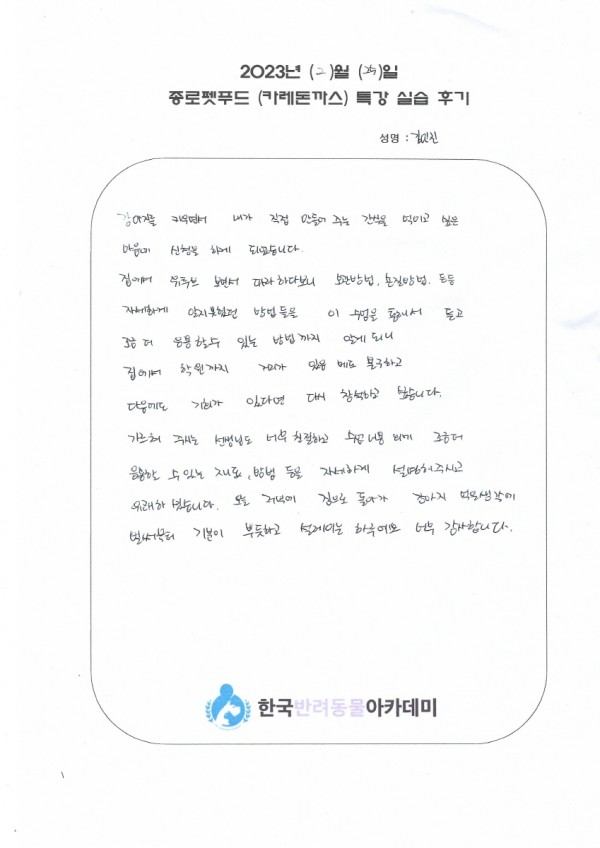 2023년 (2)월 (25)일
종로펫푸드 (카레돈까스) 특강 실습 후기
성명 :
강아지를 키우면서 내가 직접 만들어 주는 간식을 먹이고 싶은
마음에 신청을 하게 되었습니다.
집에서 유튜브 보면서 따라하다보니 보관방법, 손질방법, 등등
자세하게 알지못했던 방법들을 이 수업을 통해서 듣고
조금 더 응용할수 있는 방법까지 알게 되니
집에서 학원까지 거리가 있음 에도 불구하고
다음에도 기회가 있다면 다시 참석하고 싶습니다.
가르쳐 주시는 선생님도 너무 친절하고 수업내용 외에 조금더
응용할 수 있는 재료, 방법 등을 자세하게 설명해주시고
유쾌하셨습니다. 오늘 저녁에 집으로 돌아가 강아지 먹일생각에
벌써부터 기분이 뿌듯하고 설레이는 하루에요 너무 감사합니다.
한국반려동물아카데미